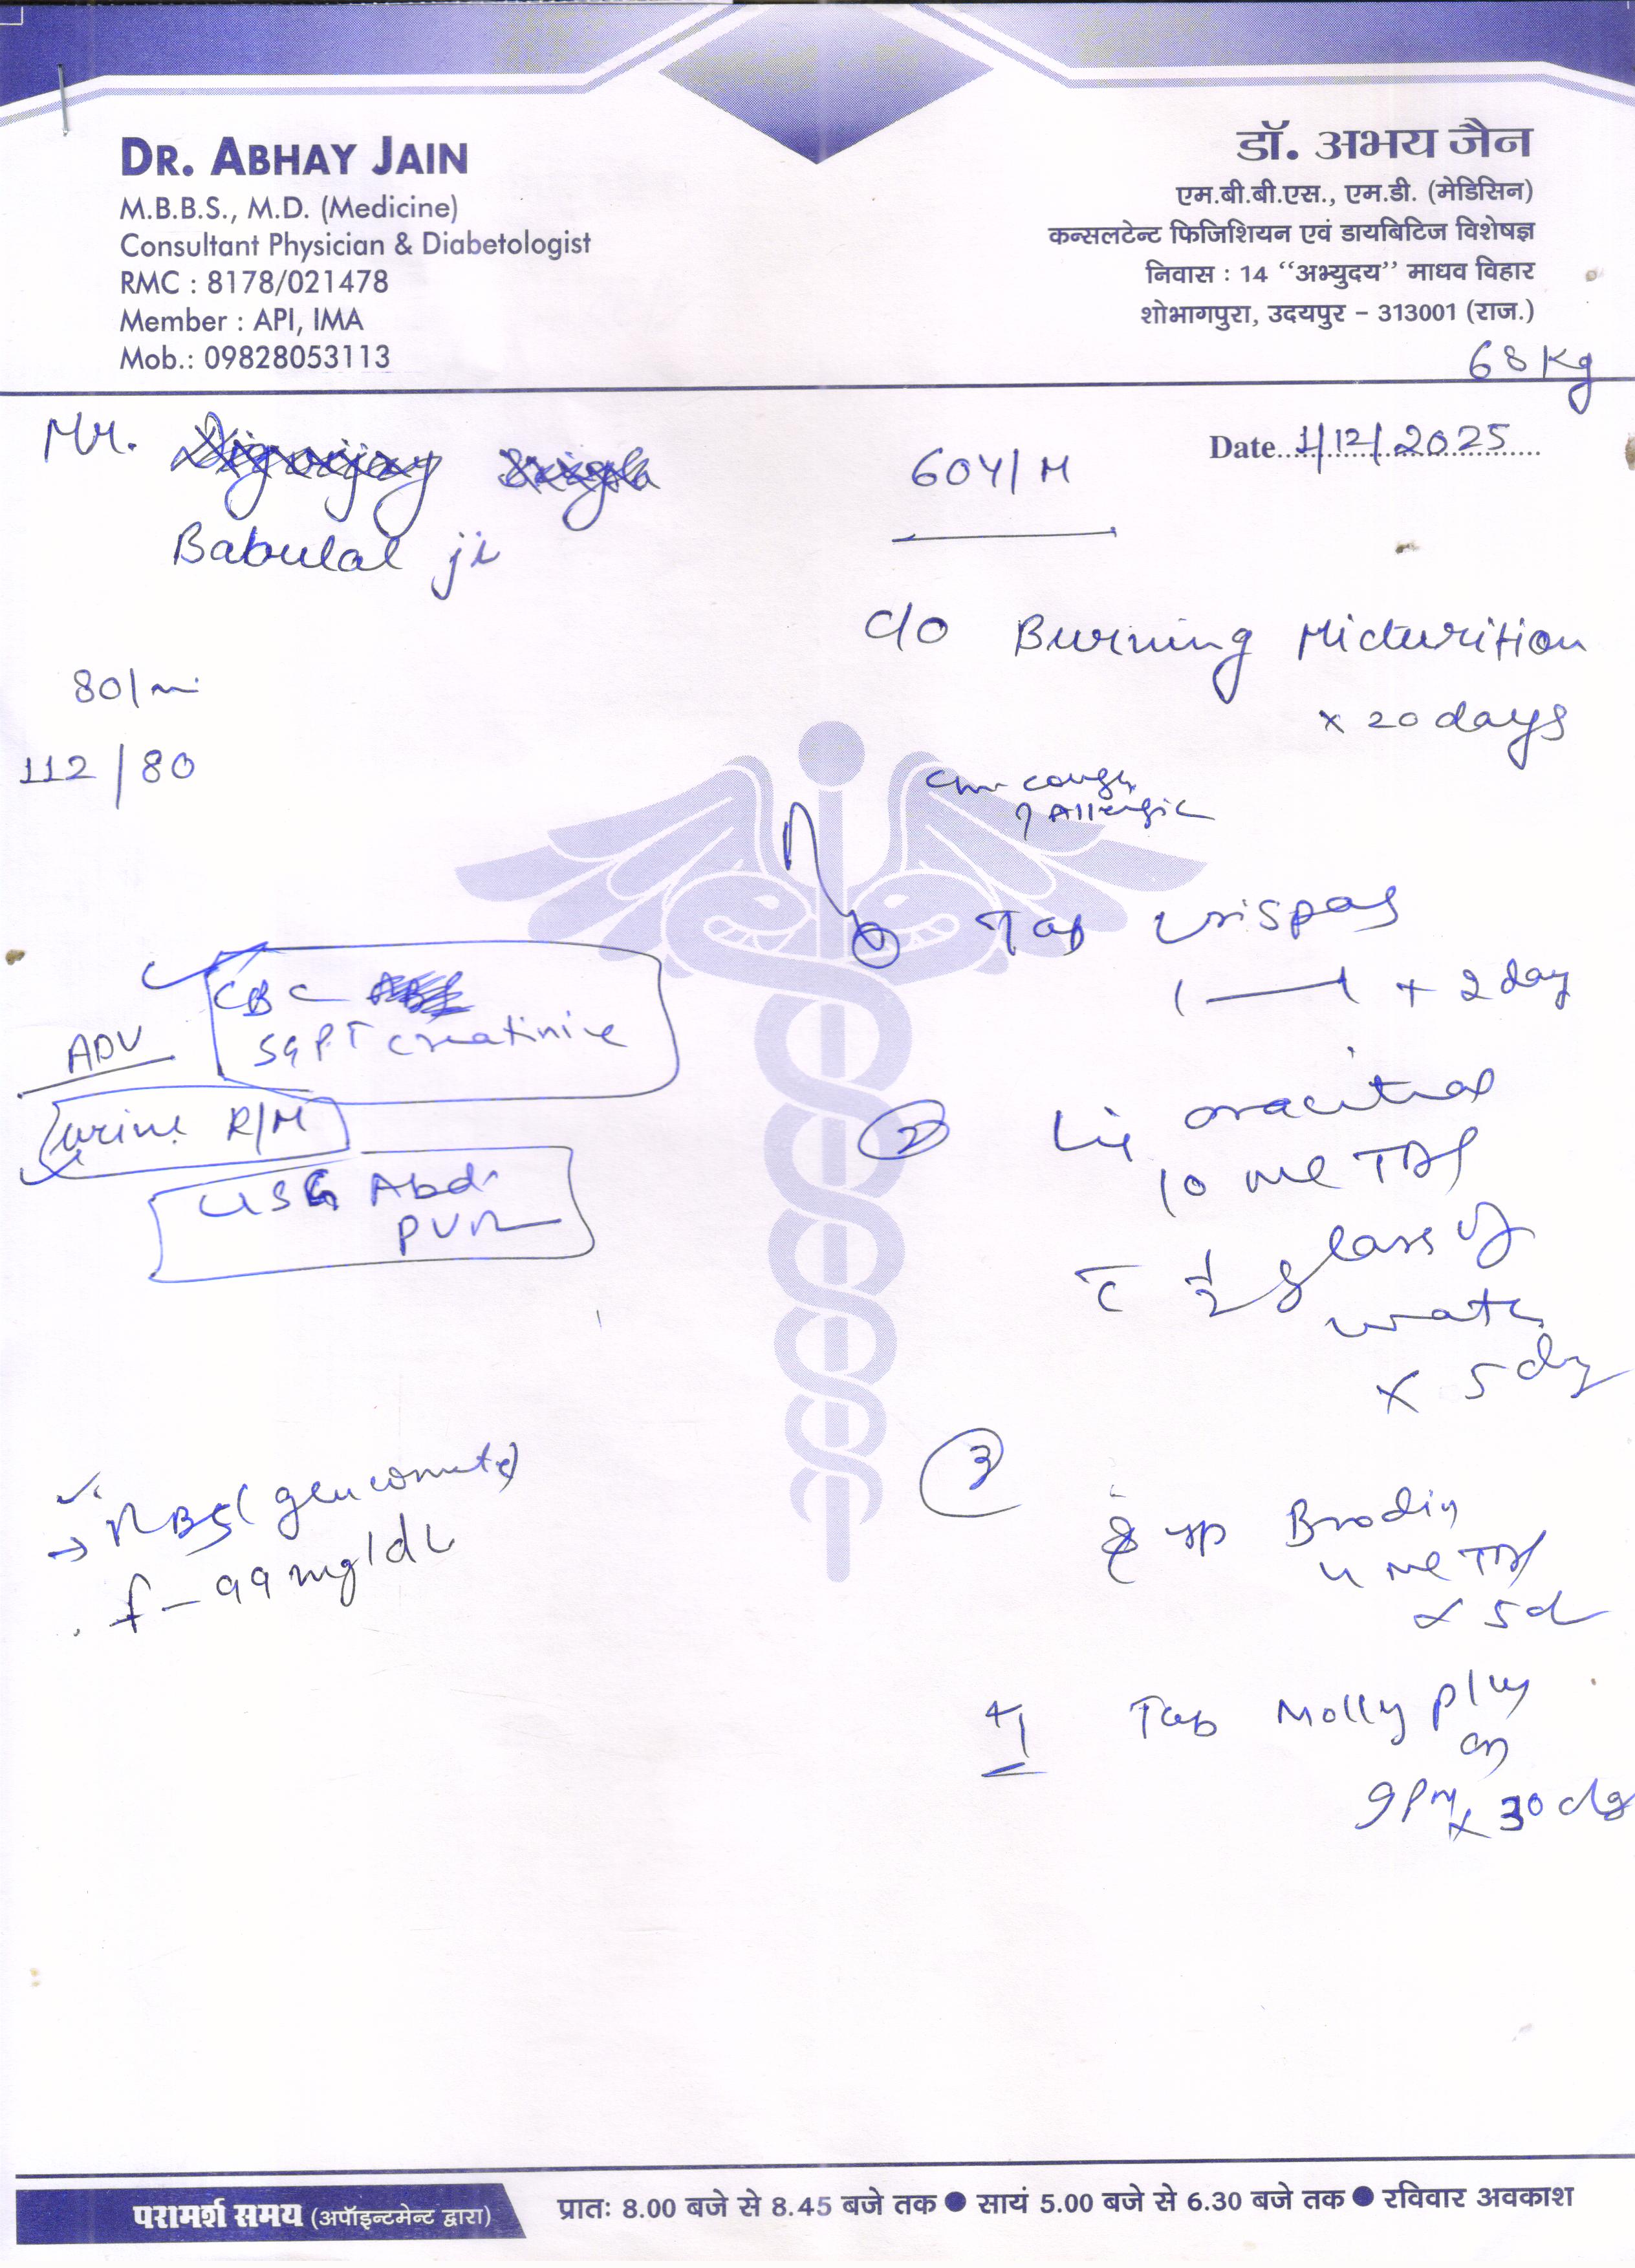 DR. ABHAY JAIN
M.B.B.S., M.D. (Medicine)
Consultant Physician & Diabetologist
RMC : 8178/021478
Member : API, IMA
Mob.: 09828053113
डॉ. अभय जैन
एम.बी.बी.एस., एम.डी. (मेडिसिन)
कन्सलटेन्ट फिजिशियन एवं डायबिटिज विशेषज्ञ
निवास : 14 “अभ्युदय” माधव विहार
शोभागपुरा, उदयपुर – 313001 (राज.)
68 Kg
Mr.
Babulal ji
60Y/M
Date 1/12/2025
c/o Burning Micturition
x 20 days
80/
112/80
cough
? Allergic
Tab Urispas
1 — 1 + 2 day
ADV
CBC
SGPT creatinine
Urine R/M
USG Abd.
PVR
2
10 ml TDS
c̄ 1/2 glass of
water
x 5 day
→ RBS (glucometer)
f - 99 mg/dL
3
Syp
4 ml TDS
x 5d
4 Tab Molly plus
on
9 PM x 30 days
परामर्श समय (अपॉइन्टमेन्ट द्वारा)
प्रातः 8.00 बजे से 8.45 बजे तक ● सायं 5.00 बजे से 6.30 बजे तक ● रविवार अवकाश